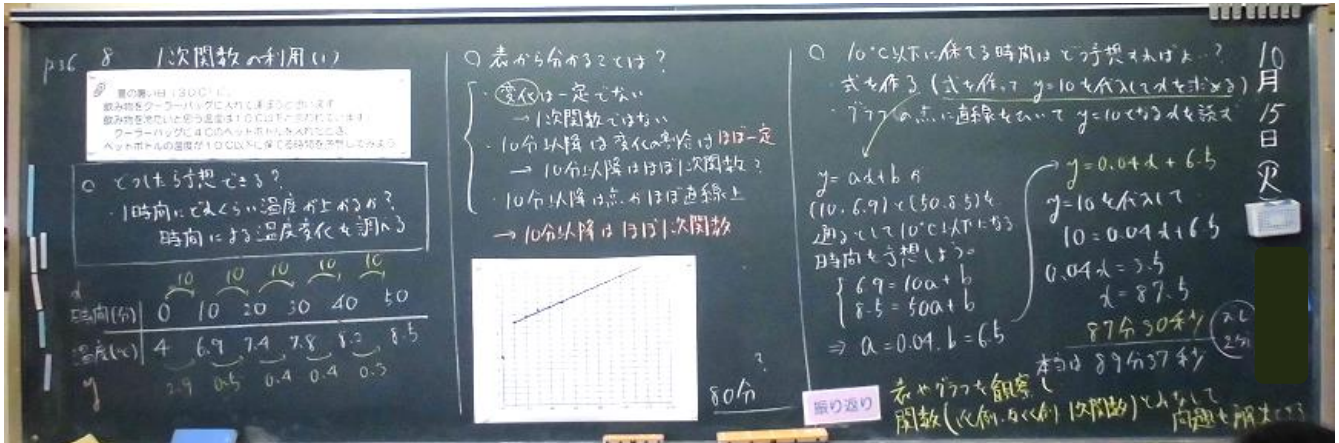 p36 8 1次関数の利用(1)
夏の暑い日(30℃)に、
飲み物をクーラーバッグに入れて
飲み物を冷たいと思う温度は10℃以下と言われています
クーラーバッグに4℃のペットボトルを入れたとき、
ペットボトルの温度が10℃以下に保てる時間を予想してみよう
○ どうしたら予想できる?
・1時間にどれくらい温度が上がるか?
時間による温度変化を調べる
10 10 10 10 10
x
時間(分) 0 10 20 30 40 50
温度(℃) 4 6.9 7.4 7.8 8.2 8.5
y 2.9 0.5 0.4 0.4 0.3
○ 表から分かることは?
・変化は一定でない
→1次関数ではない
・10分以降は変化の割合はほぼ一定
→10分以降はほぼ1次関数?
・10分以降は点がほぼ直線上
→10分以降はほぼ1次関数
?
80分
○ 10℃以下に保てる時間はどう予想すればよい?
・式を作る(式を作って y=10を代入してxを求める)
・グラフの点に直線をひいて y=10となるxを読む
y=ax+bが
(10, 6.9)と(50, 8.5)を
通るとして10℃以下になる
時間を予想しよう。
6.9=10a+b
8.5=50a+b
⇒ a=0.04, b=6.5
→ y=0.04x+6.5
y=10を代入して
10=0.04x+6.5
0.04x=3.5
x=87.5
87分30秒
本当は89分37秒
振り返り
表やグラフを観察し
関数(比例、反比例、1次関数)とみなして
問題を解決できる
10
月
15
日
火